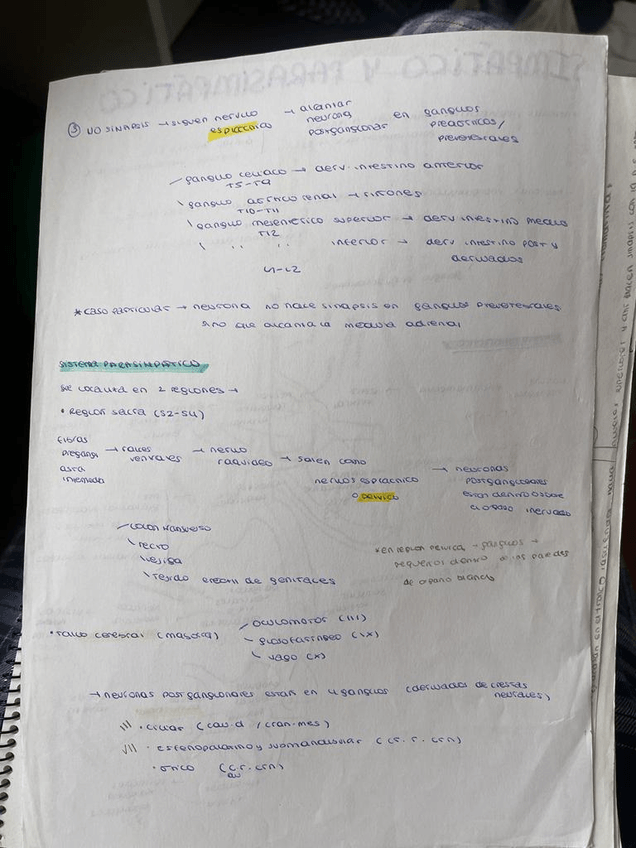 SIMPÁTICO Y PARASIMPÁTICO
③ NO SINAPSIS → siguen nervio esplacnico → alcanzar neurona postganglionar en ganglios preaorticos / prevertebrales
ganglio celiaco → deriv. intestino anterior
T5-T9
ganglio aortico renal → riñones
T10-T11
ganglio mesenterico superior → deriv intestino medio
T12
" " inferior → deriv intestino post y derivados
L1-L2
* caso particular → neurona no hace sinapsis en ganglios prevertebrales
sino que alcanza la medula adrenal
SISTEMA PARASIMPÁTICO
se localiza en 2 regiones →
• Region sacra (S2-S4)
fibras pregangl asta intermedio → raices ventrales → nervio raquideo → salen como nervios esplacnico o pelvico → neuronas postganglionares estan dentro o sobre el organo inervado
colon transverso
recto
vejiga
tejido erectil de genitales
* en region pelvica → ganglios → pequeños dentro de las paredes
de organo blanco
• tallo cerebral (mayoria)
oculomotor (III)
glosofaringeo (IX)
vago (X)
→ neuronas postganglionares estan en 4 ganglios (derivados de crestas neurales)
III • ciliar (cau.d / cran-mes)
VII • esfenopalatino y submandibular (cr. r. crn)
• otico (c.r. crn)